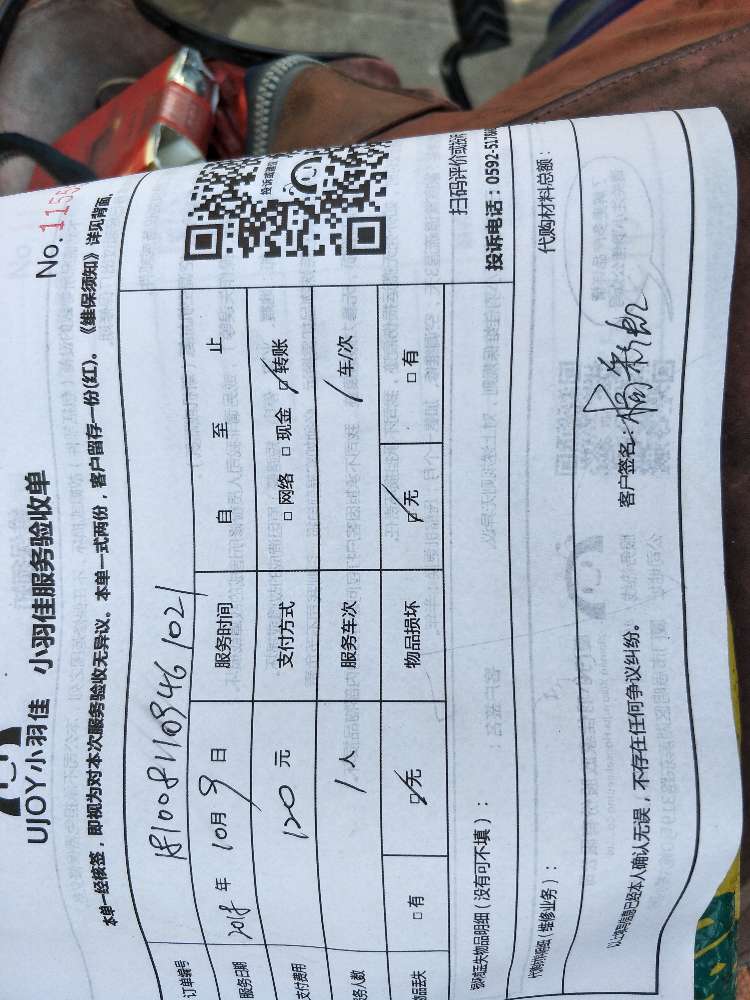 No. 1155
UJOY小羽佳 小羽佳服务验收单
本单一经核签，即视为对本次服务验收无异议。本单一式两份，客户留存一份(红)。《维保须知》详见背面。
订单编号 181008110946 1021
服务日期 2018 年 10月 9 日 服务时间 自 至 止
支付费用 120 元 支付方式 □ 网络 □ 现金 □ 转账
务人数 1 人 服务车次 / 车/次
物品丢失 □ 有 □ 无 物品损坏 □ 无 □ 有
投诉或建议
扫码评价或投诉
投诉电话：0592-5178
损坏丢失物品明细（没有可不填）：
代购材料明细（维修业务）： 代购材料总额：
以上填写信息已经本人确认无误，不存在任何争议纠纷。 客户签名：